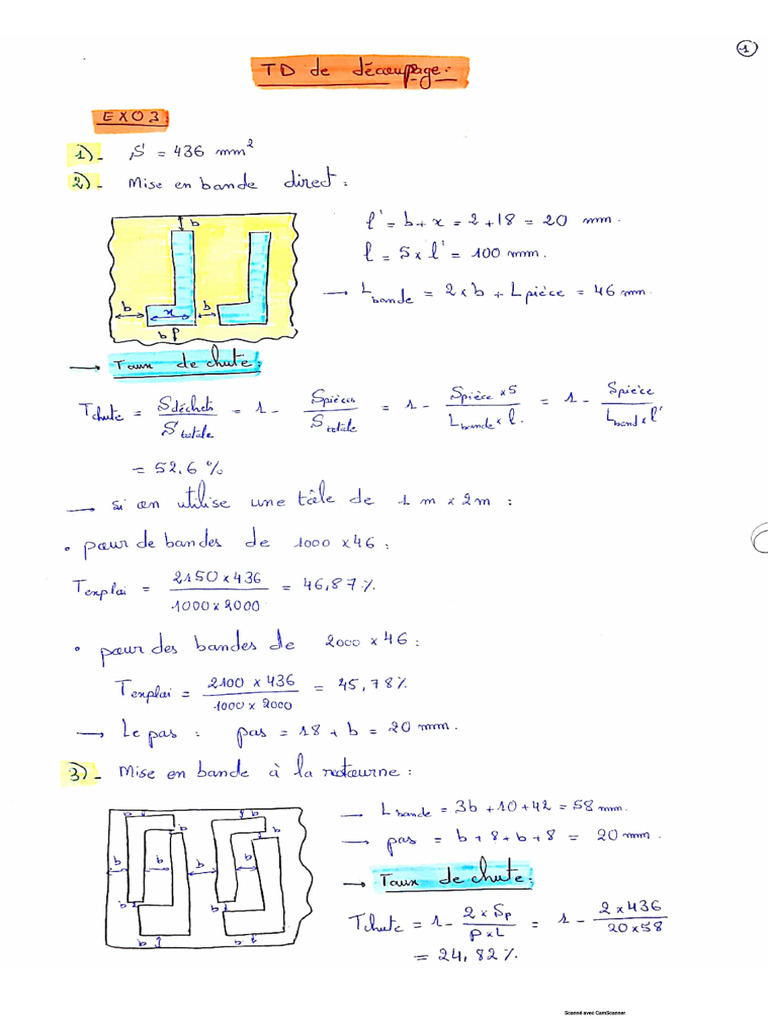 1
TD de découpage:
EXO3
1)- S = 436 mm²
2)- Mise en bande direct:
b
b x b
b p
l' = b + x = 2 + 18 = 20 mm.
l = 5 x l' = 100 mm.
→ L bande = 2 x b + L pièce = 46 mm.
→ Taux de chute:
Tchute = Sdéchets / S totale = 1 - Spièces / S totale = 1 - Spièce x 5 / L bande x l. = 1 - Spièce / L band x l'
= 52,6 %
→ si on utilise une tôle de 1 m x 2m :
• pour de bandes de 1000 x 46 :
Texploi = 2150 x 436 / 1000 x 2000 = 46,87 %.
• pour des bandes de 2000 x 46 :
Texploi = 2100 x 436 / 1000 x 2000 = 45,78 %
→ Le pas : pas = 18 + b = 20 mm.
3)- Mise en bande à la retourne :
b b
b b b b b
b b
b b
→ L bande = 3b + 10 + 42 = 58 mm.
→ pas = b + 8 + b + 8 = 20 mm.
→ Taux de chute:
Tchute = 1 - 2 x Sp / p x L = 1 - 2 x 436 / 20 x 58
= 24,82 %.
Scanné avec CamScanner